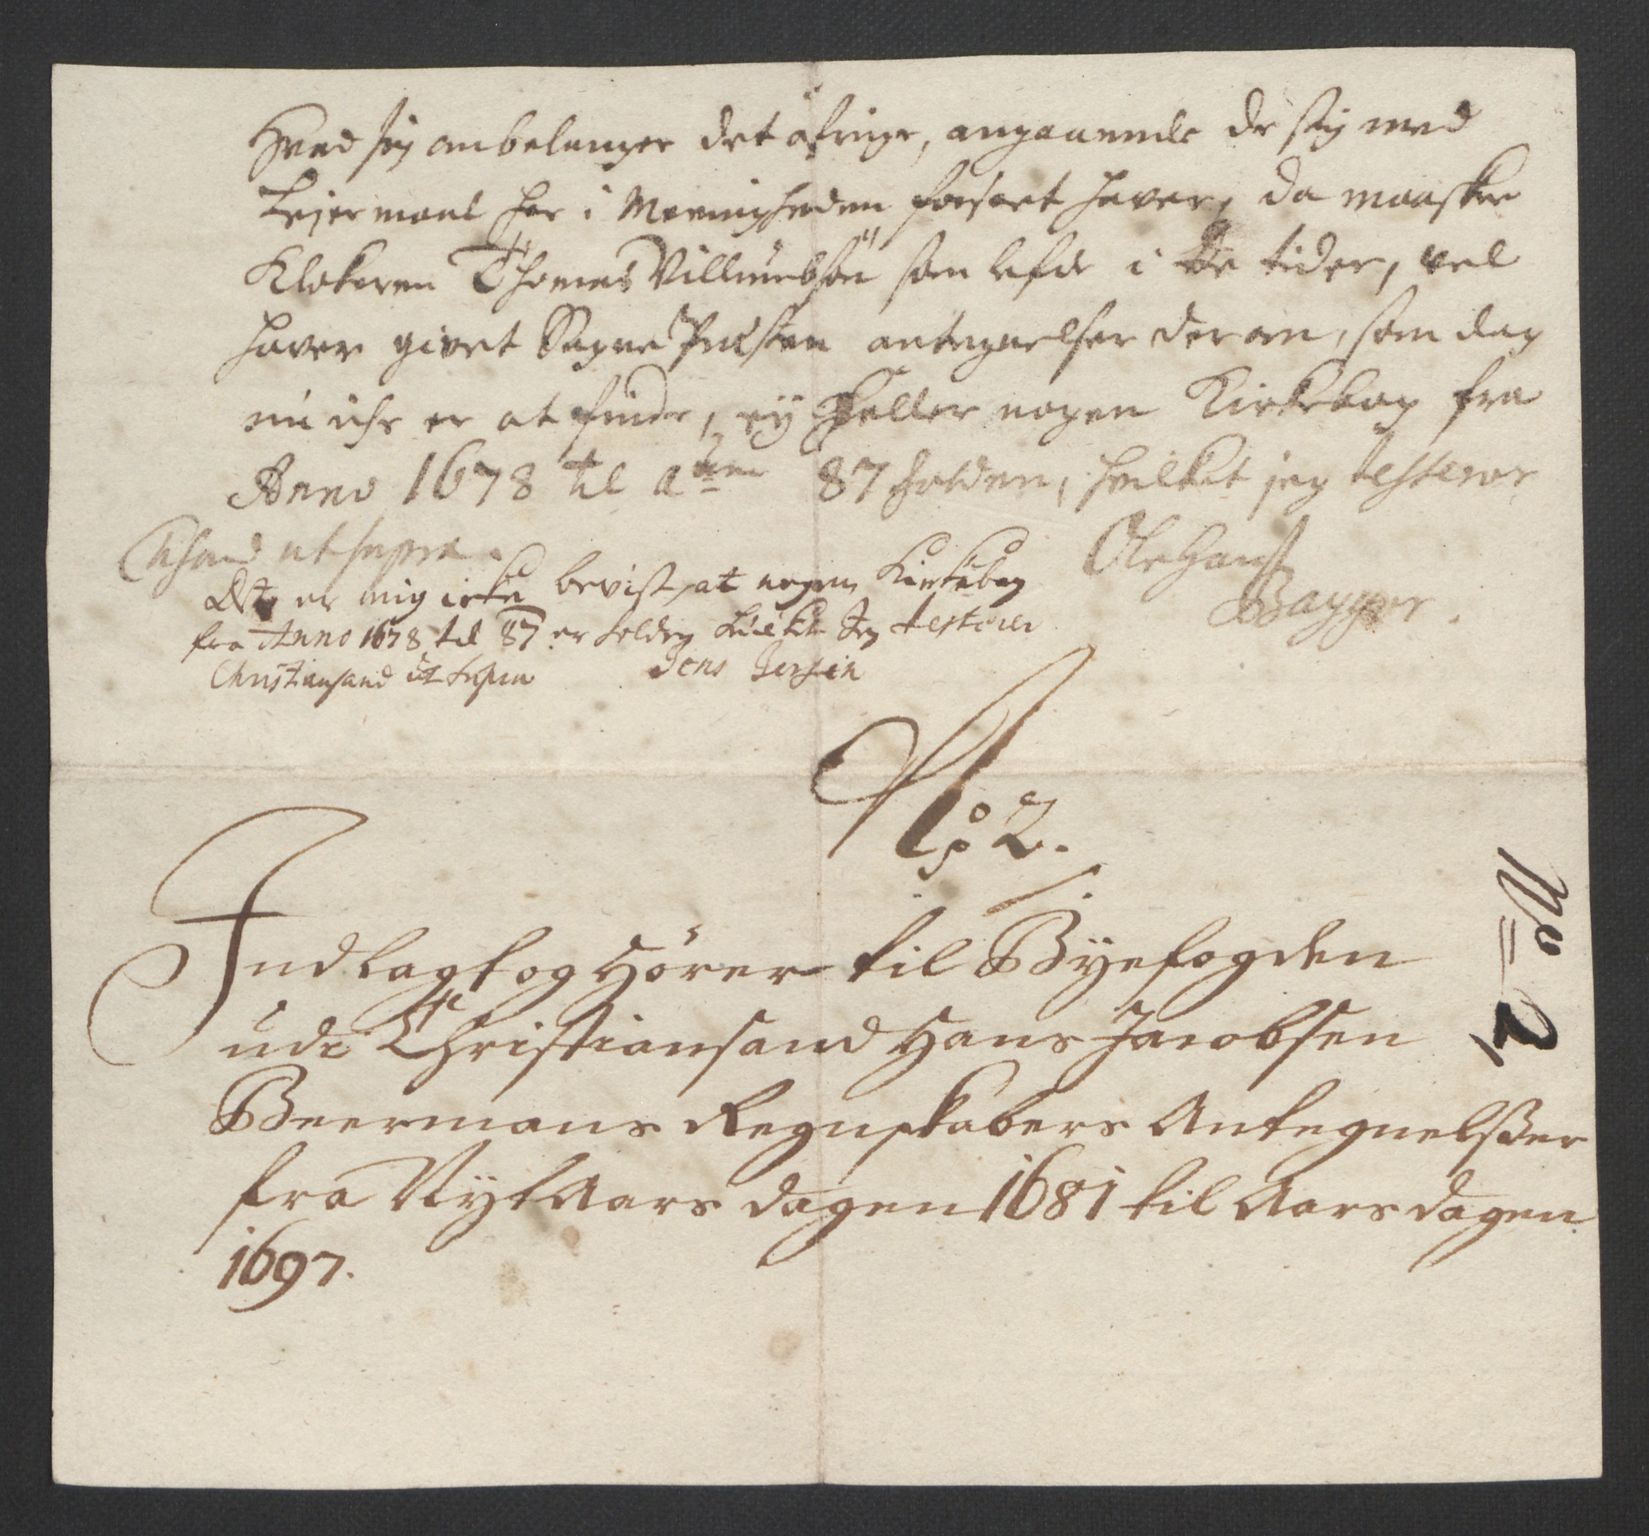 Hvad sig anbelanger det øfrige, angaaende de sig med
Lejermaal her i Meenigheden forseet haver, da maaskee
Klokeren Thomas Villumsøn som lefde i de tider, vel
haver givet Sogne Præsten antegnelser der om, som dog
nu iche er at finde, ey heller nogen Kirkebog fra
Anno 1678 til a 87 holden, hvilket jeg testerer
Chsand ut supra.
Ole Hans
Bagger.
Det er mig icke bevist, at nogen Kirkebog
fra Anno 1678 til 87 er holden hvilket Jeg testerer
Christiansand ut supra Jens Jensen
No 2.
Indlagt og Hörer til Byefogden
udi Christiansand Hans Jacobsen
Beermans Regnskabers Antegnelsser
fra Nyt Aars dagen 1681 til Aars dagen
1697.
No 2